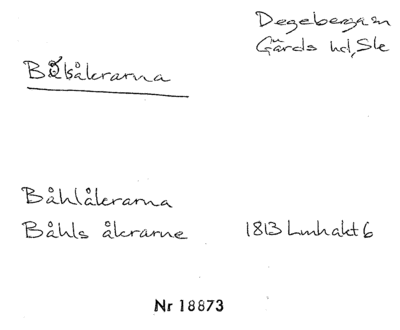 Degeberga sn
Gärds hd, Skå
Bålsåkrarna
Båhlåkrarna
Båhls åkrarne 1813 Lmhakt 6
Nr 18873